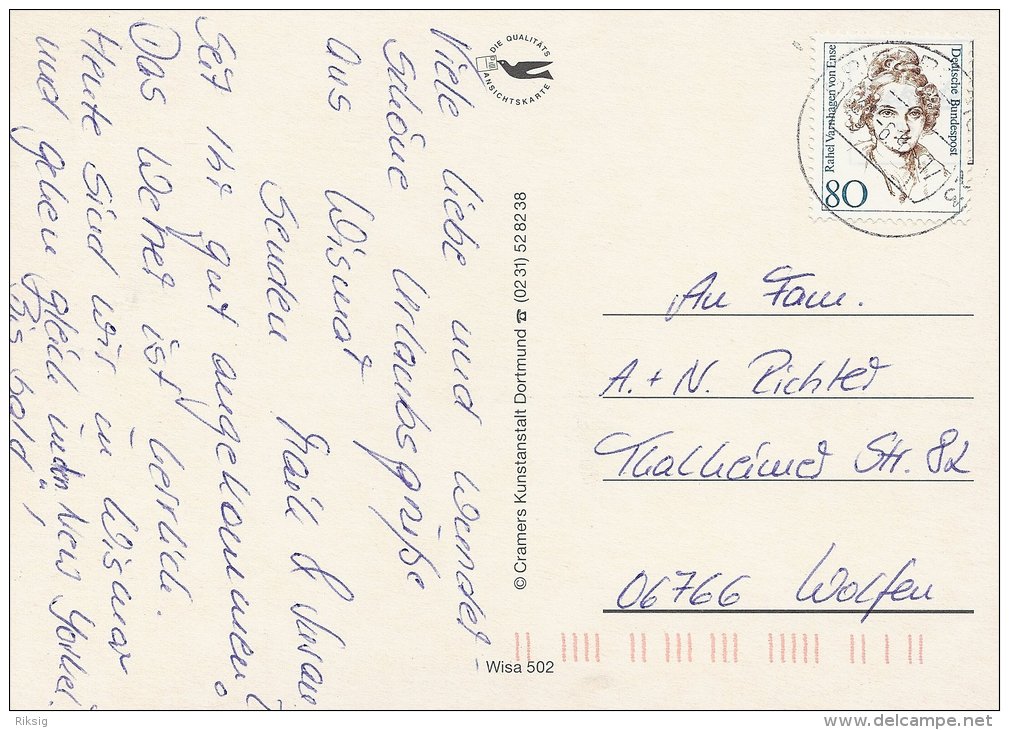 Viele liebe und wunder-
schöne Urlaubsgrüße
aus Wismar
senden Maik & Susan
Seid Ihr gut angekommen?
Das Wetter ist herrlich.
Heute sind wir in Wismar
und gehen gleich in den "New Yorker".
Bis bald!
DIE QUALITÄTS
ANSICHTSKARTE
© Cramers Kunstanstalt Dortmund ☎ (02 31) 52 82 38
Wisa 502
Deutsche Bundespost
Rahel Varnhagen von Ense
80
An Fam.
A. + N. Richter
Thalheimer Str. 82
06766 Wolfen
Riksig
delcampe.net